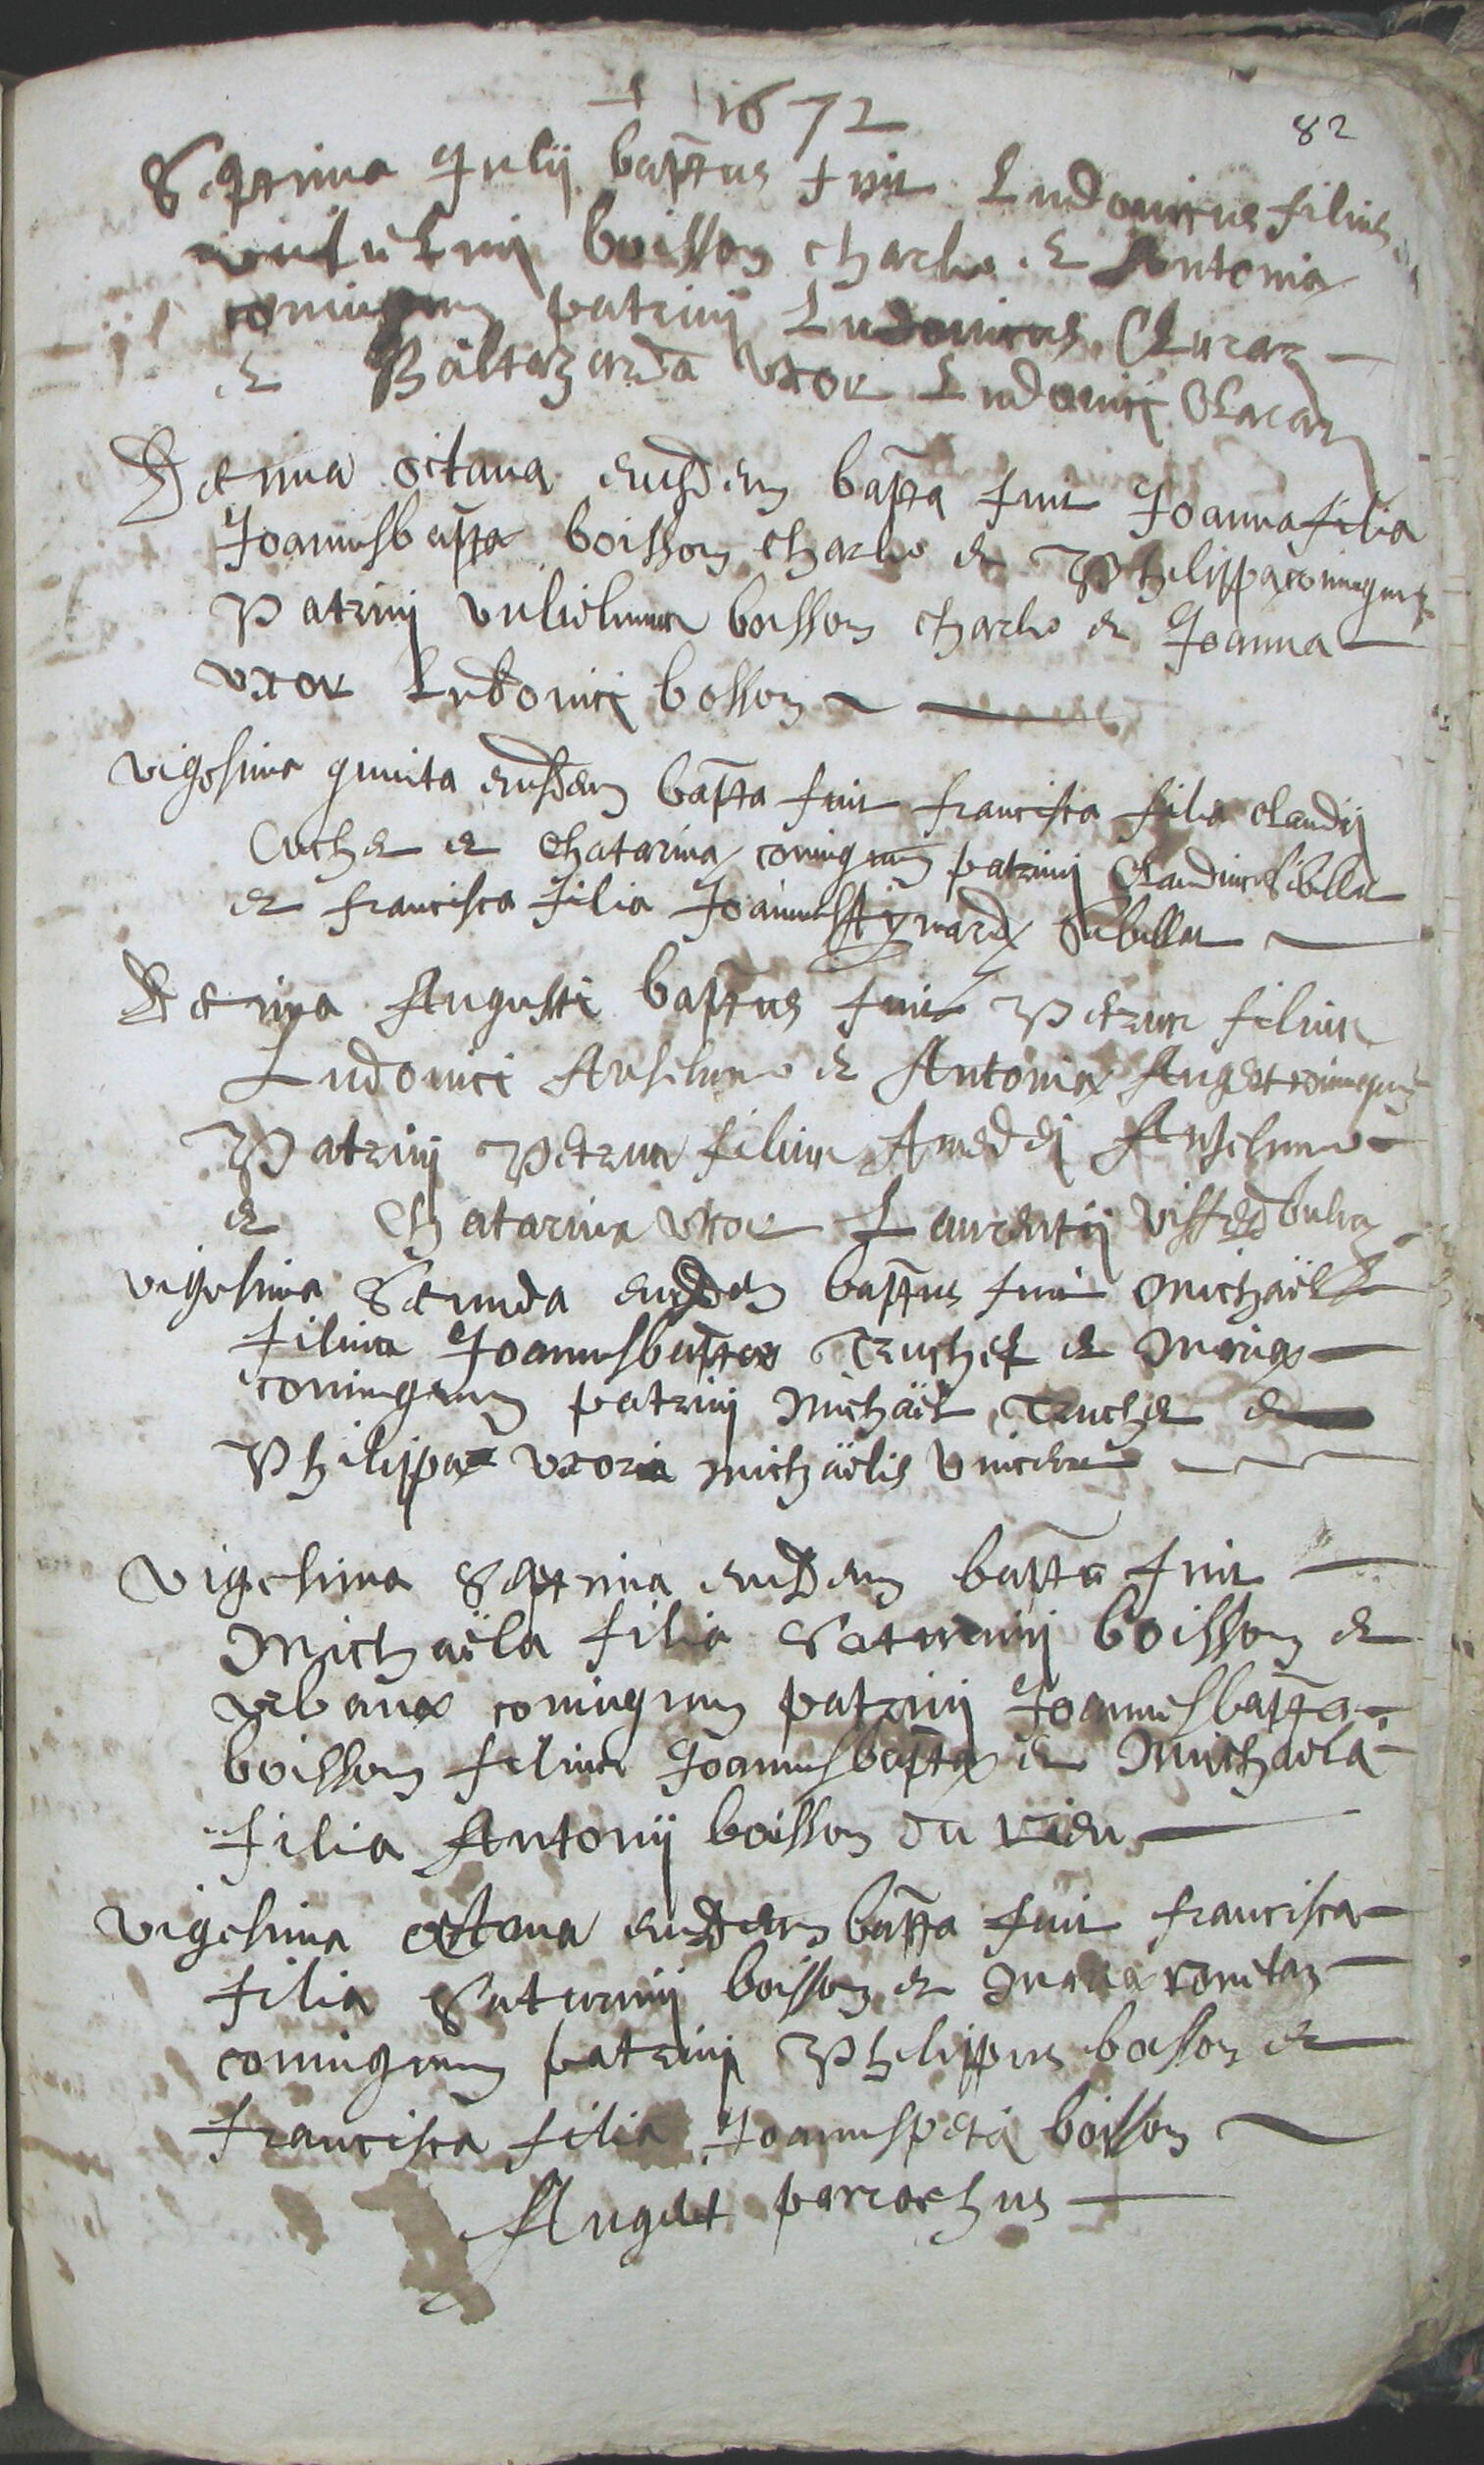 1672
82
Septima Julij baptus fuit Ludovicus filius
boisson charlo et Antonia
coniugum patrinij Ludovicus Claraz
et Baltazarda uxor Ludovici Claraz
Decima octava eiusdem bapta fuit Joanna filia
Joannisbapta boisson charlo et Philippa coniugum
Patrinij vulielmus boisson charlo et Joanna
uxor Ludovici bosson
vigesima quinta eiusdem bapta fuit francisca filia claudij
Cochet et Chatarina coniugum patrinij Claudius sibillat
et francisca filia Joannis Sibillat
Decima Augusti baptus fuit Petrus filius
Ludovici Anselmo et Antonia Anget coniugum
Patrinij Petrus filius Amedei Anselmo
et Chatarina uxor Laurentij
vigesima Secunda eiusdem baptus fuit Michaël
filius Joannisbapta Truchet et Maria
coniugum patrinij Michaël Truchet et
Philippa uxoris michaëlis
vigesima Septima eiusdem bapta fuit
Michaëla filia Saturnini boisson et
urbana coniugum patrinij Joannesbapta
boisson filius Joannisbapta et Michaela
filia Antonij boisson du
vigesima octava eiusdem bapta fuit francisca
filia Saturnini boisson et maria
coniugum patrinij Philippus bosson et
francisca filia Joannispetri boisson
Anget parrochus